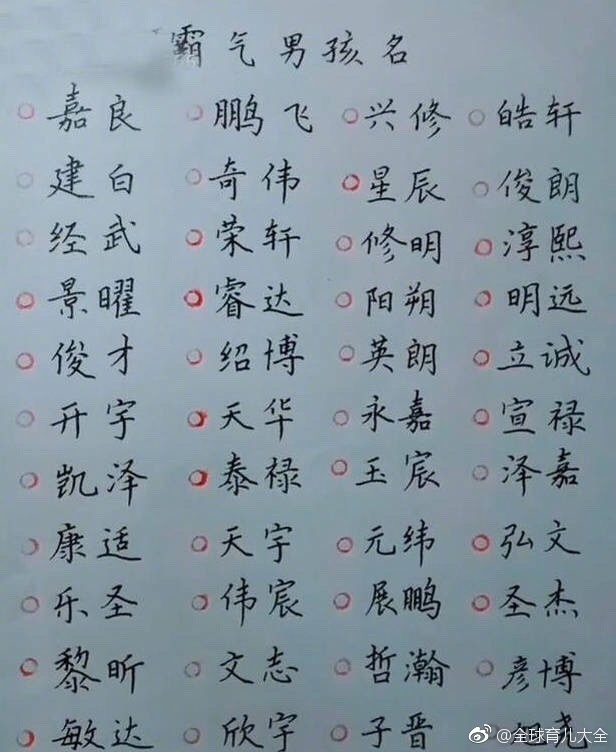 霸气男孩名
嘉良 鹏飞 兴修 皓轩
建白 奇伟 星辰 俊朗
经武 荣轩 修明 淳熙
景曜 睿达 阳朔 明远
俊才 绍博 英朗 立诚
开宇 天华 永嘉 宣禄
凯泽 泰禄 玉宸 泽嘉
康适 天宇 元纬 弘文
乐圣 伟宸 展鹏 圣杰
黎昕 文志 哲瀚 彦博
敏达 欣宇 子晋 尧
@全球育儿大全